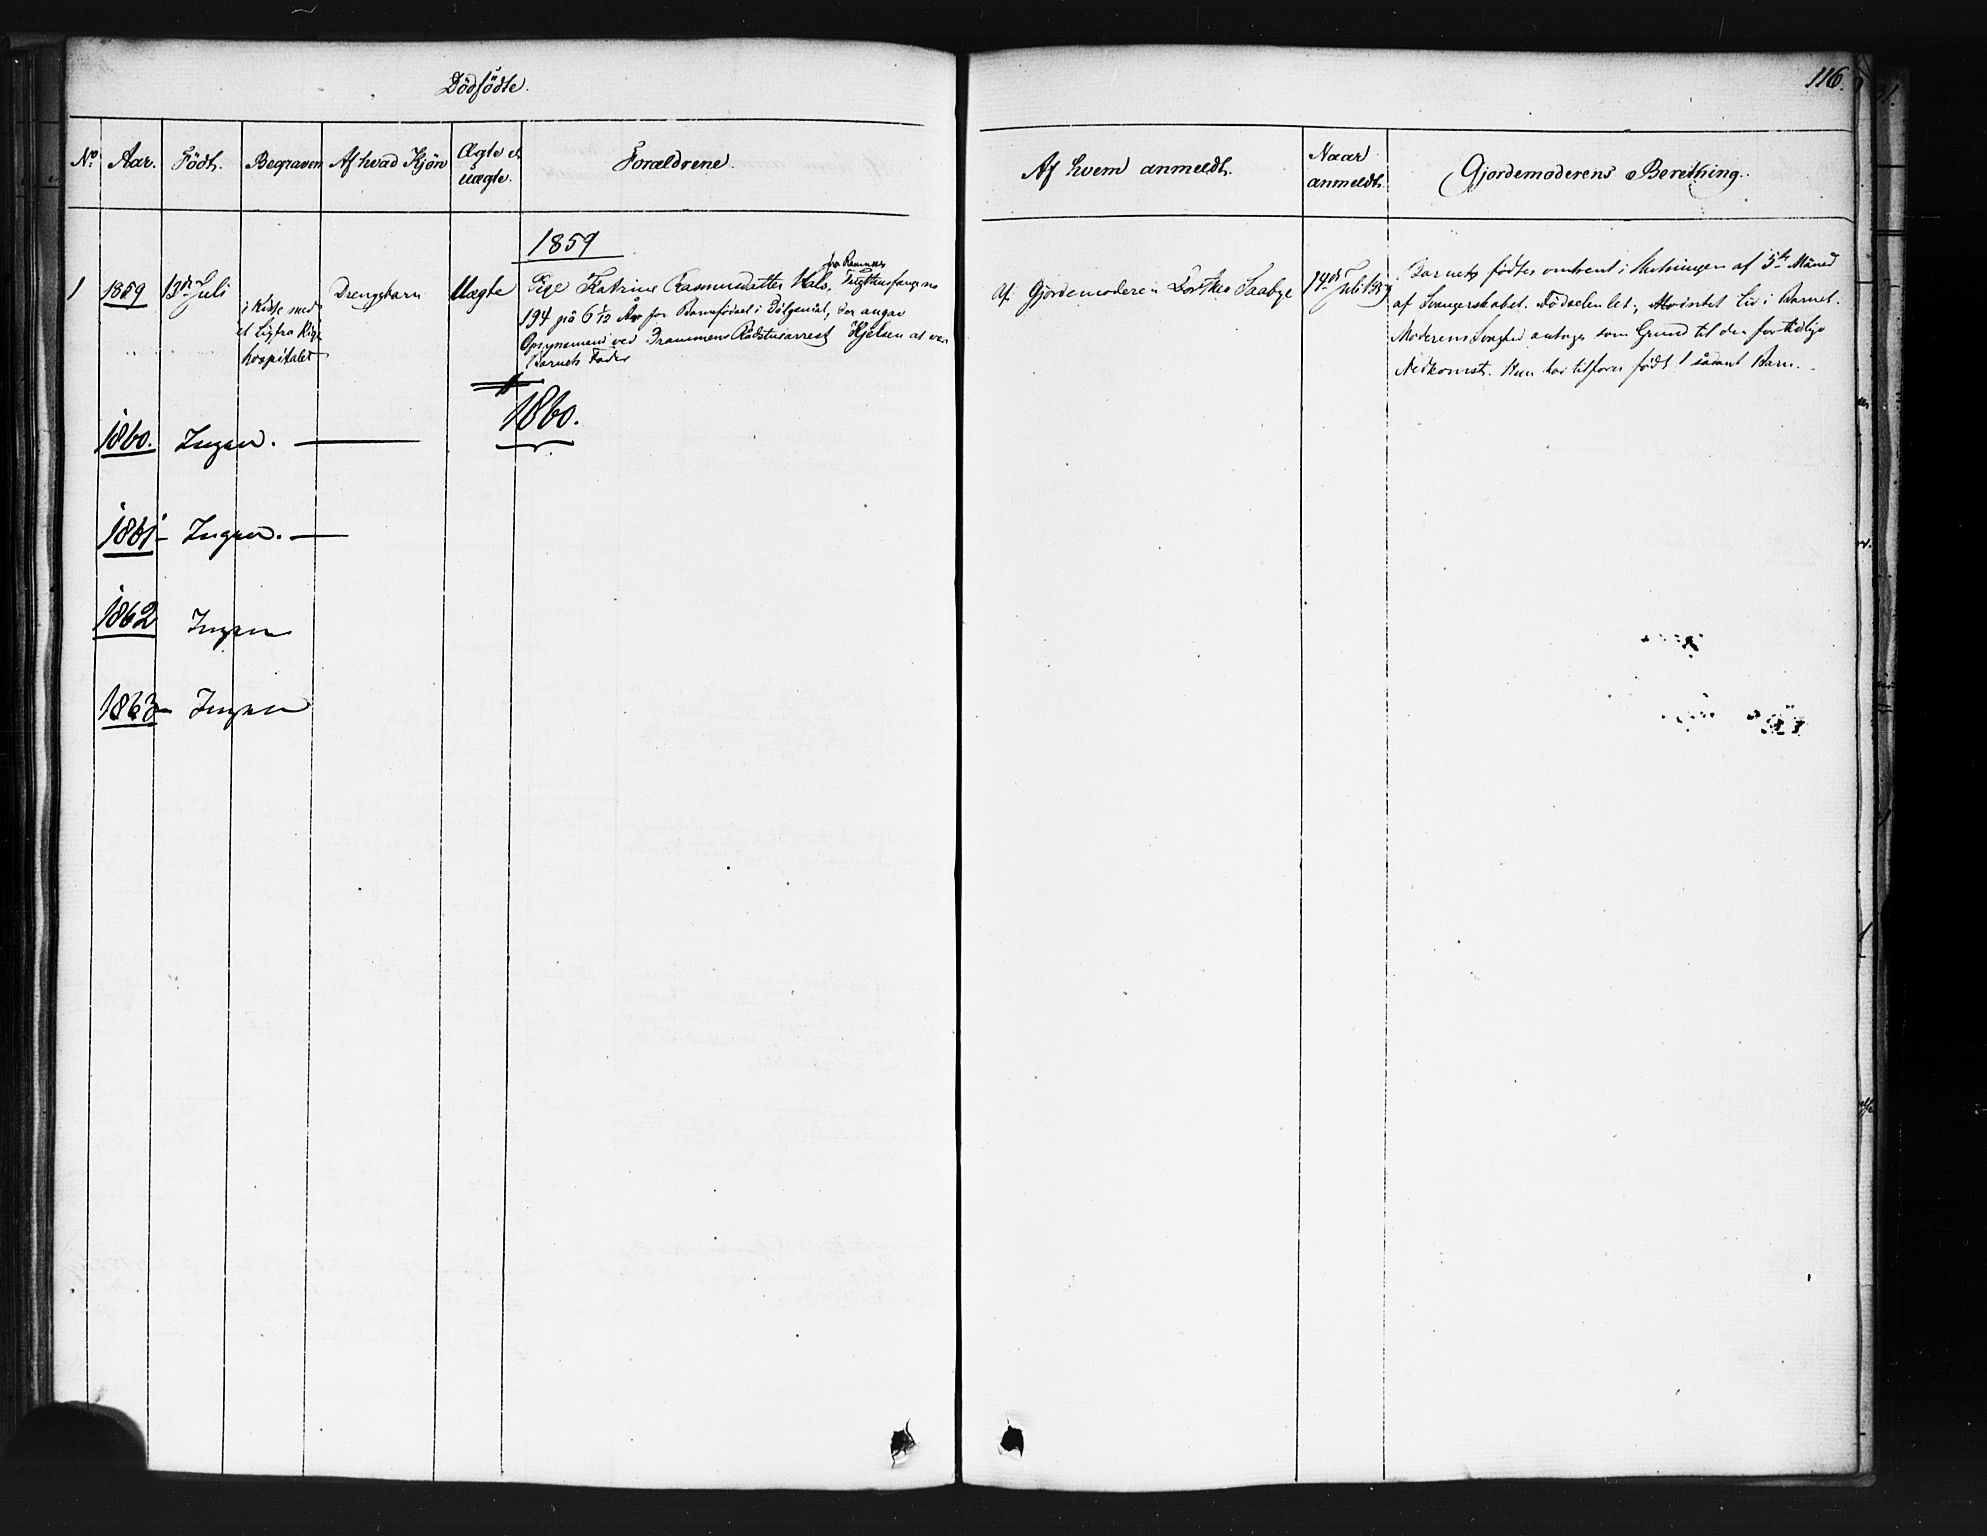 Dödfödte.
116.
No. Aar. Födt. Begraven Af hvad Kjön Ægte el. Uægte. Forældrene.
Af hvem anmeldt. Naar anmeldt. Gjordemoderens Beretning.
1859
1 1859 13de Juli
i Kiste med
et Lig fra Rigs
hospitalet
Drengebarn
Uægte
fra Ramnes
Pige Katrine Rasmusdatter Hals, Tugthusfange no
194 på 6 1/12 År for Barnefödsel i Dölgsmål, der angav
Opsynsmand ved Drammens Rådstuearrest Hjelsen at være
Barnets Fader
Af Gjordemoderen Dorthea Saabye
14de Juli
Barnet födtes omtrent i Slutningen af 5te Måned
af Svangerskabet. Födselen let; intet Liv i Barnet.
Moderens antages som Grund til den fortidlige
Nedkomst. Hun har tilforn födt 1 sådant Barn.
1860.
1860. Ingen.
1861 - Ingen.
1862 Ingen
1863 - Ingen